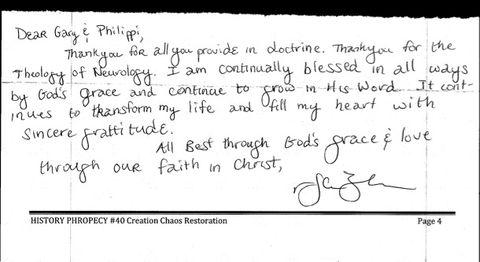 Dear Gary & Philippi,
Thankyou for all you provide in doctrine. Thankyou for the
Theology of Neurology. I am continually blessed in all ways
by God's grace and continue to grow in His Word. It cont-
inues to transform my life and fill my heart with
sincere grattitude.
All Best through God's grace & love
through our faith in Christ,
HISTORY PHROPECY #40 Creation Chaos Restoration Page 4